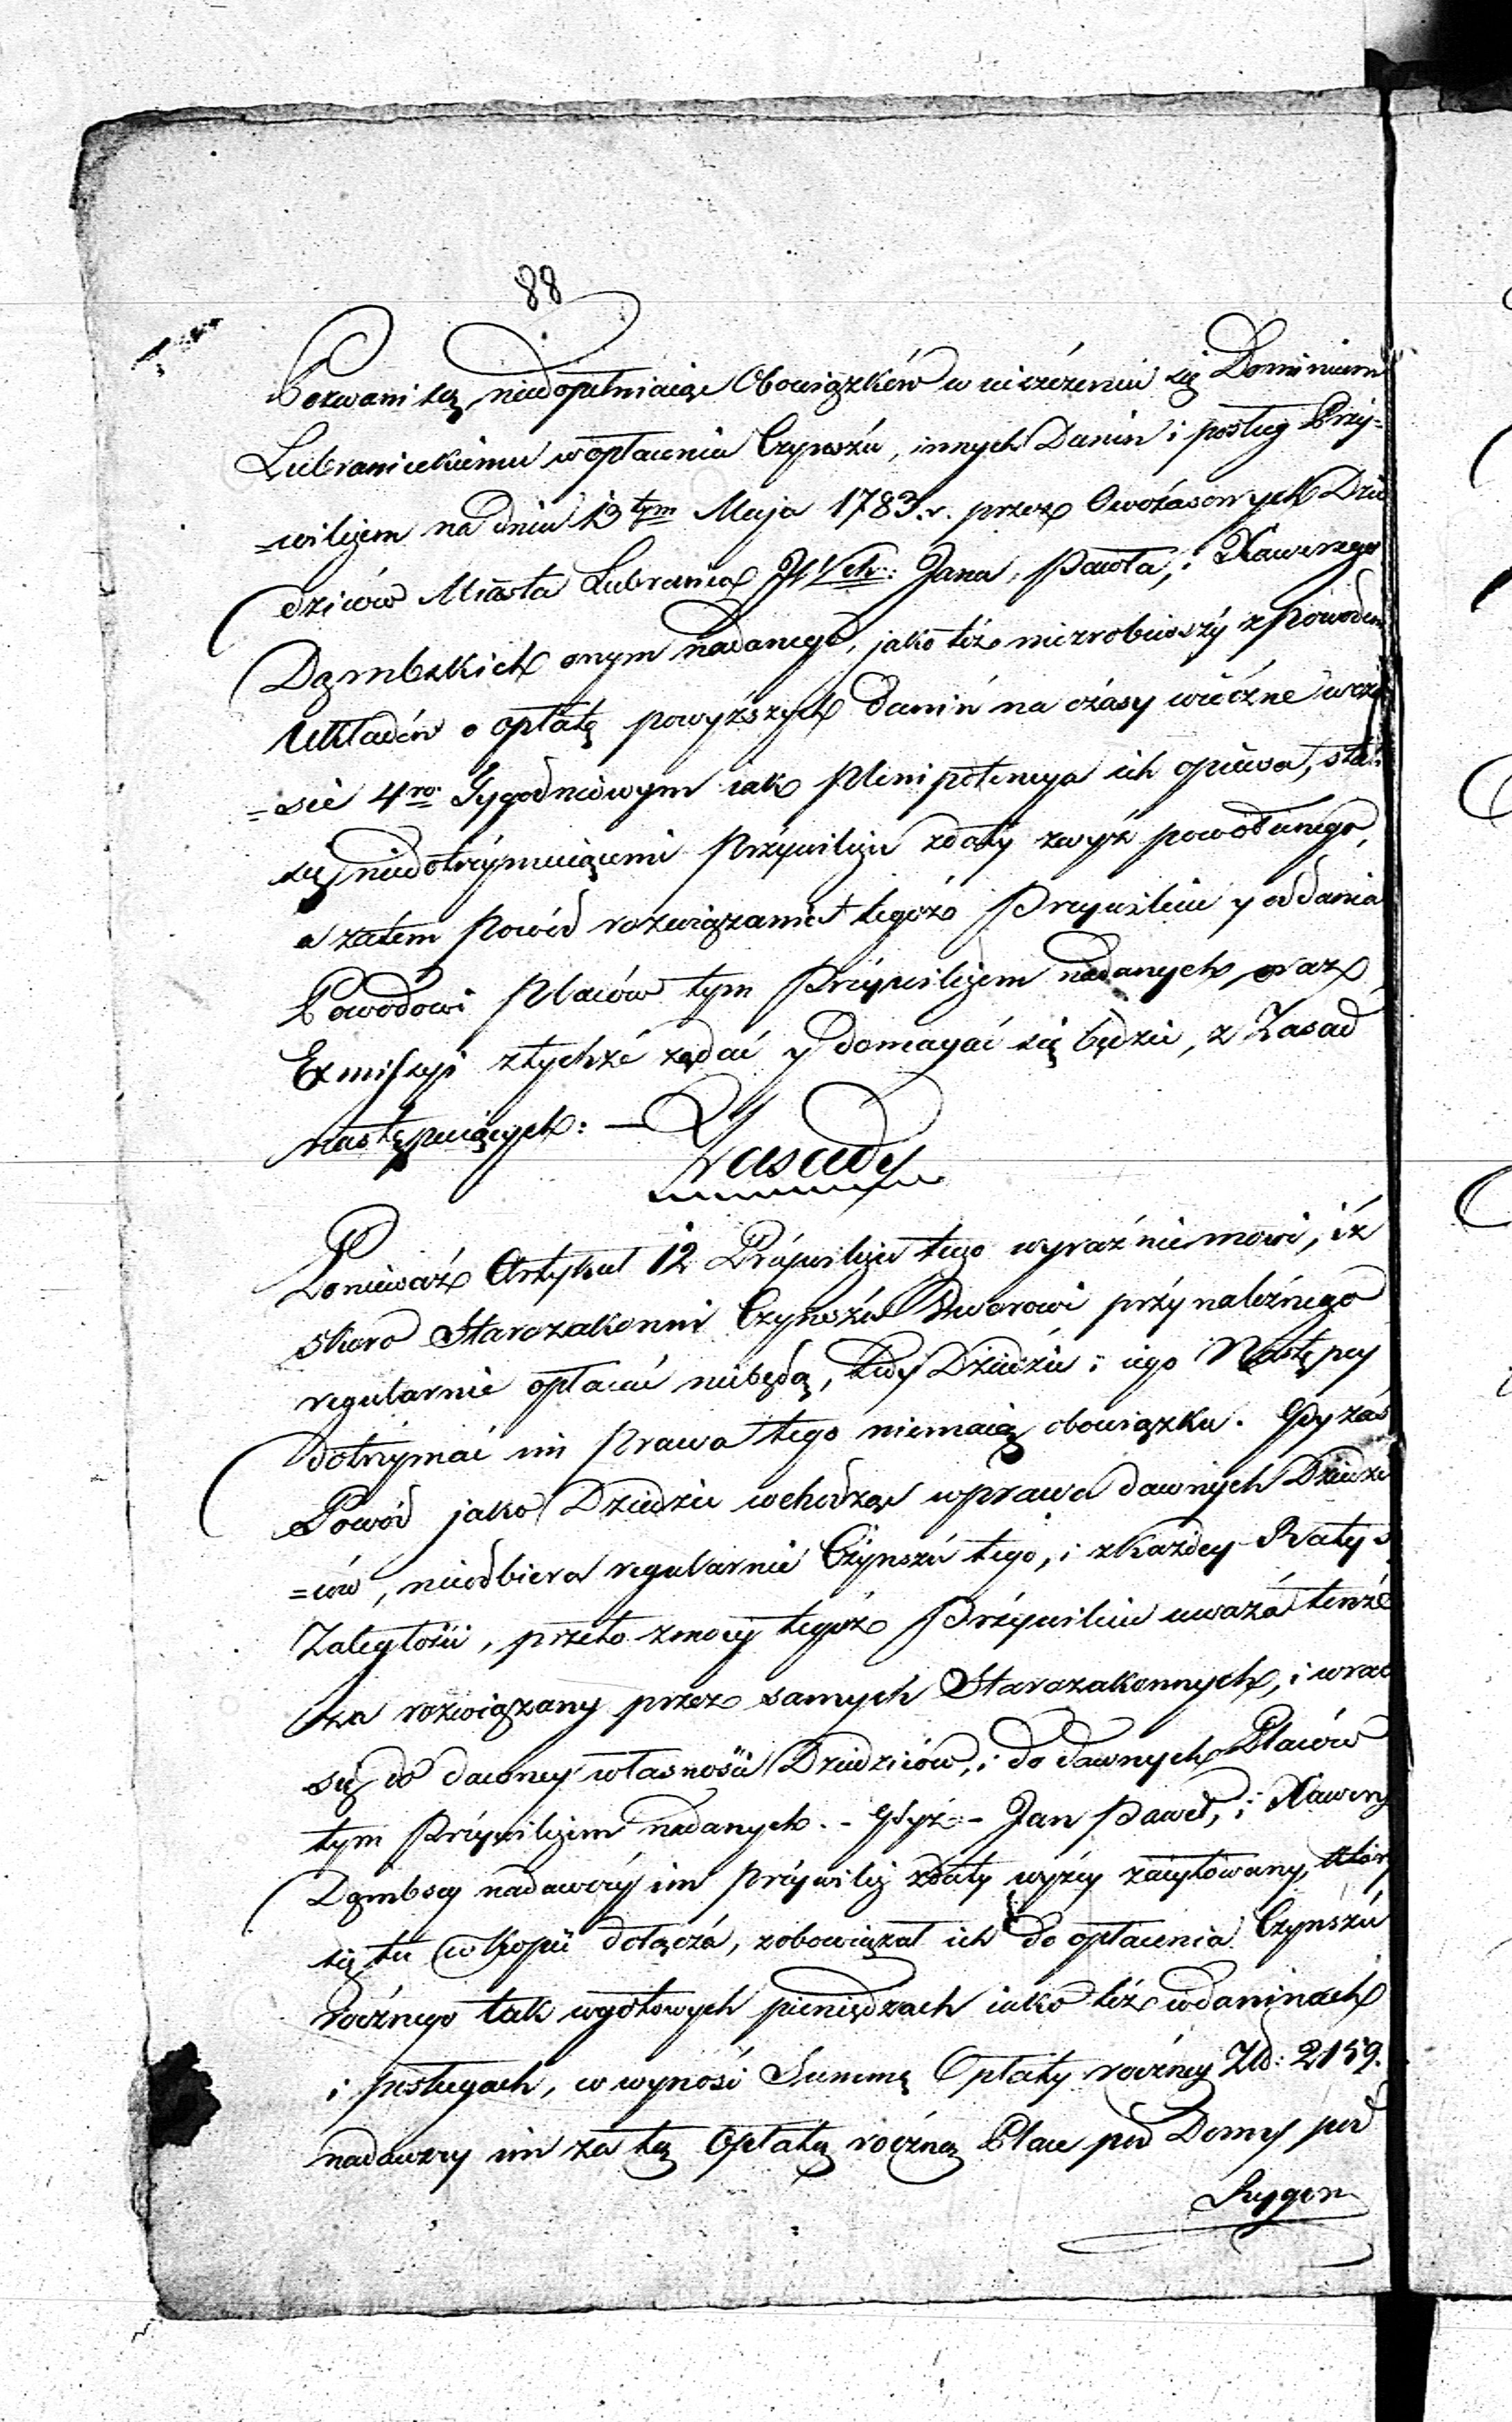 88
Pozwani są, niedopełniaiąc Obowiązków w uiszczeniu się Dominium
Lubranieckiemu w opłaceniu Czynszu, innych Danin i posług Przy=
=wilejem na dniu 13tym Maja 1783. r. przez Owczasowych Dzie
dziców Miasta Lubrańca JWch: Jana, Pawła, i Xawerego
Dąmbskich onym nadanego, jako też niezrobiwszy z Powodem
Układów o opłatę powyższych danin na czasy wieczne w cza
=sie 4ro Tygodniowym iak Plenipotencya ich opiewa, stali
się niedotrzymuiącemi Przywileju z daty zwyż powołanego,
a zatem Powód rozwiązania tegoż Przywileiu y oddania
Powodowi Placów tym Przywilejem nadanych oraz
Exmissyi z tychże żądać y domagać się będzie, z Zasad
następuiących: —
Zasady
Ponieważ Artykuł 12 Przywileju tego wyraźnie mówi, iż
skoro Starozakonni Czynszu Dworowi przynależnego
regularnie opłacać niebędą, tedy Dziedzic i iego Następcy
dotrzymać im Prawa tego niemaią obowiązku. Gdy zaś
Powód jako Dziedzic wchodząc w prawa dawnych Dziedzi
=ców, nieodbiera regularnie Czynszu tego, i z każdey Raty s
Zaległości, przeto z mocy tegoż Przywileiu uważa tenże
za rozwiązany przez samych Starozakonnych, i wraca
się do dawney własności Dziedziców, i do dawnych Placów
tym Przywilejem nadanych. - Gdyż - Jan Paweł, i Xawery
Dąmbscy nadawczy im przywilej z daty wyżey zacytowany, który
się tu w Kopii dołącza, zobowiązał ich do opłacenia Czynszu
rocznego tak w gotowych pieniędzach iako też w daninach
i posługach, co wynosi Summę Opłaty roczney Złł: 2159.
nadawszy im za tę Opłatę roczną Place pod Domy pod